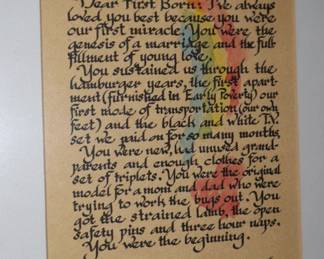 Dear First Born: I've always
loved you best because you were
our first miracle. You were the
genesis of a marriage and the full-
fillment of young love.
You sustained us through the
hamburger years, the first apart-
ment (furnished in Early Poverty) our
first mode of transportation (our own
feet) and the black and white T.V.
set we paid on for so many months.
You were new, had unused grand-
parents and enough clothes for a
set of triplets. You were the original
model for a mom and dad who were
trying to work the bugs out. You
got the strained lamb, the open
safety pins and three hour naps.
You were the beginning.